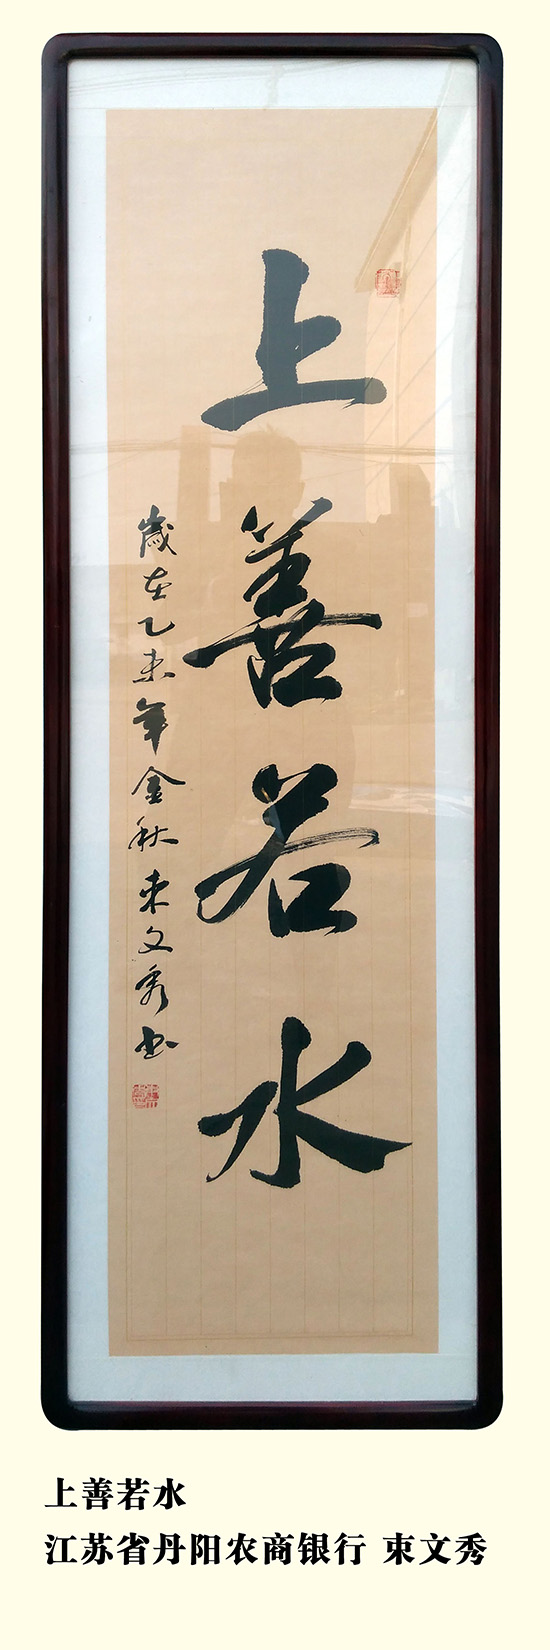 上善若水
歲在乙未年金秋束文秀书
上善若水
江苏省丹阳农商银行 束文秀